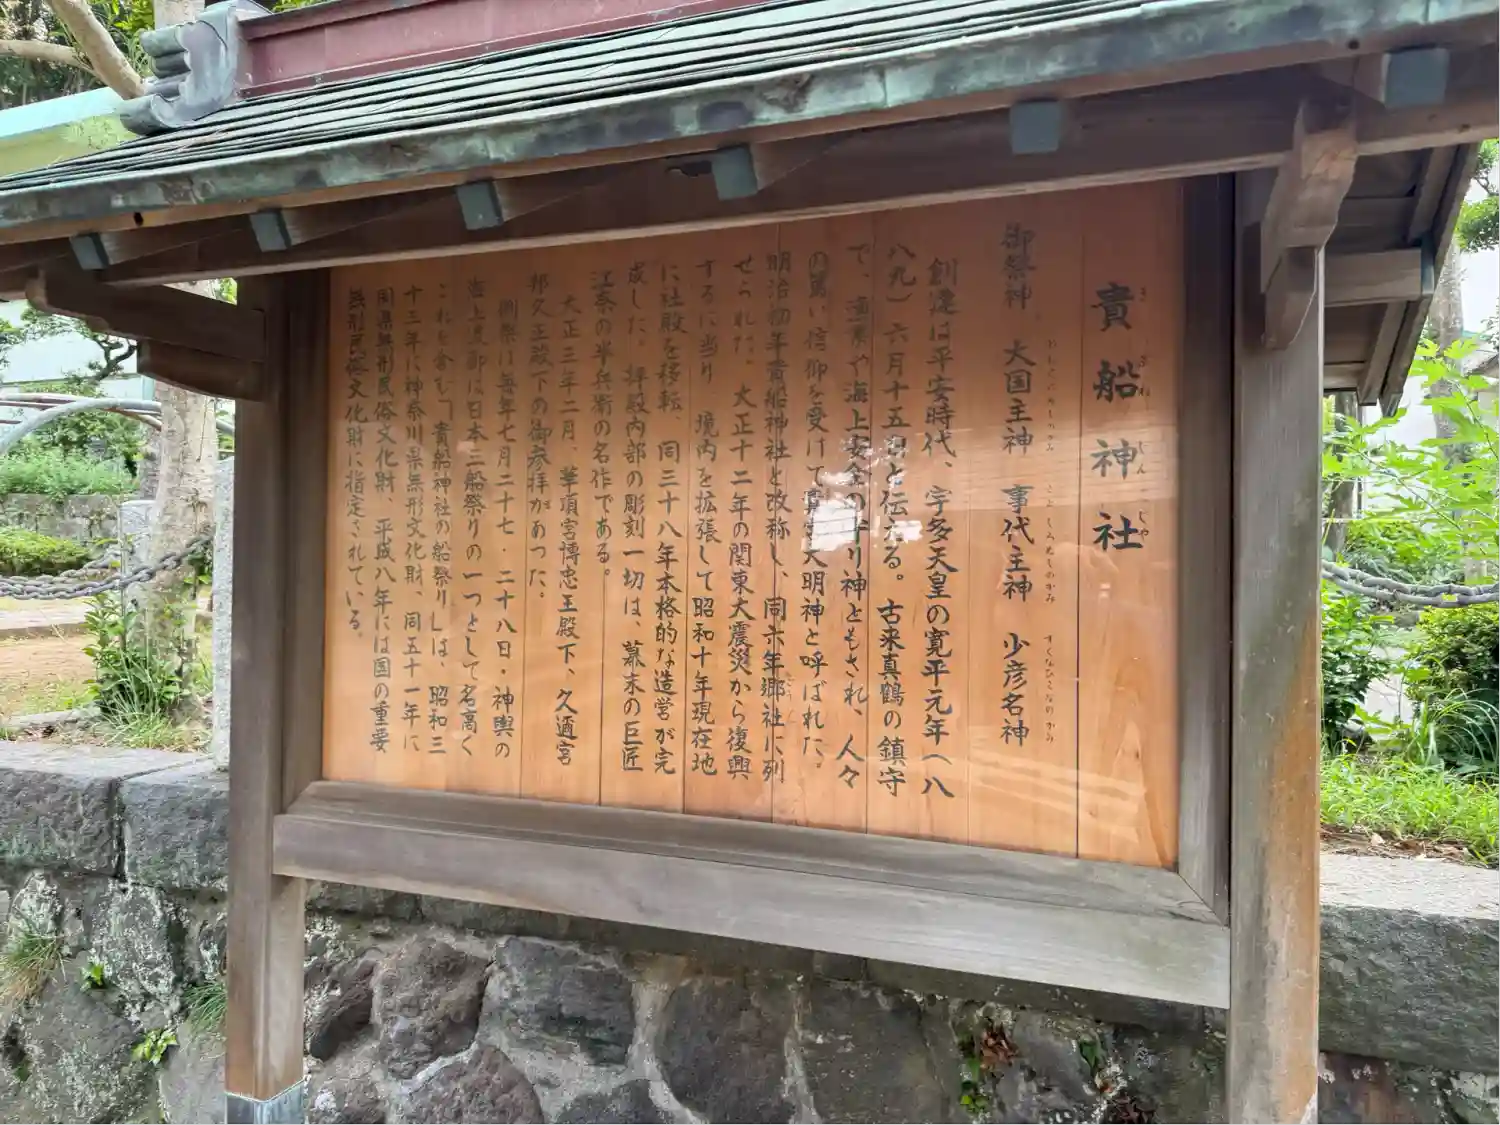 貴船神社
きぶねじんじゃ
御祭神 大国主神 事代主神 少彦名神
創建は平安時代、宇多天皇の寛平元年(八
八九)六月十五日と伝える。古来真鶴の鎮守
で、漁業や海上安全の守り神ともされ、人々
の篤い信仰を受けて貴宮大明神と呼ばれた。
明治初年貴船神社と改称し、同六年郷社に列
せられた。大正十二年の関東大震災から復興
するに当り 境内を拡張して昭和十年現在地
に社殿を移転、同三十八年本格的な造営が完
成した。拝殿内部の彫刻一切は、幕末の巨匠
江奈の半兵衛の名作である。
大正三年二月、華頂宮博忠王殿下、久邇宮
邦久王殿下の御参拝があった。
例祭は毎年七月二十七・二十八日・神輿の
海上渡御は日本三船祭りの一つとして名高く
これを含む「貴船神社の船祭り」は、昭和三
十三年に神奈川県無形文化財、同五十一年に
同県無形民俗文化財、平成八年には国の重要
無形民俗文化財に指定されている。